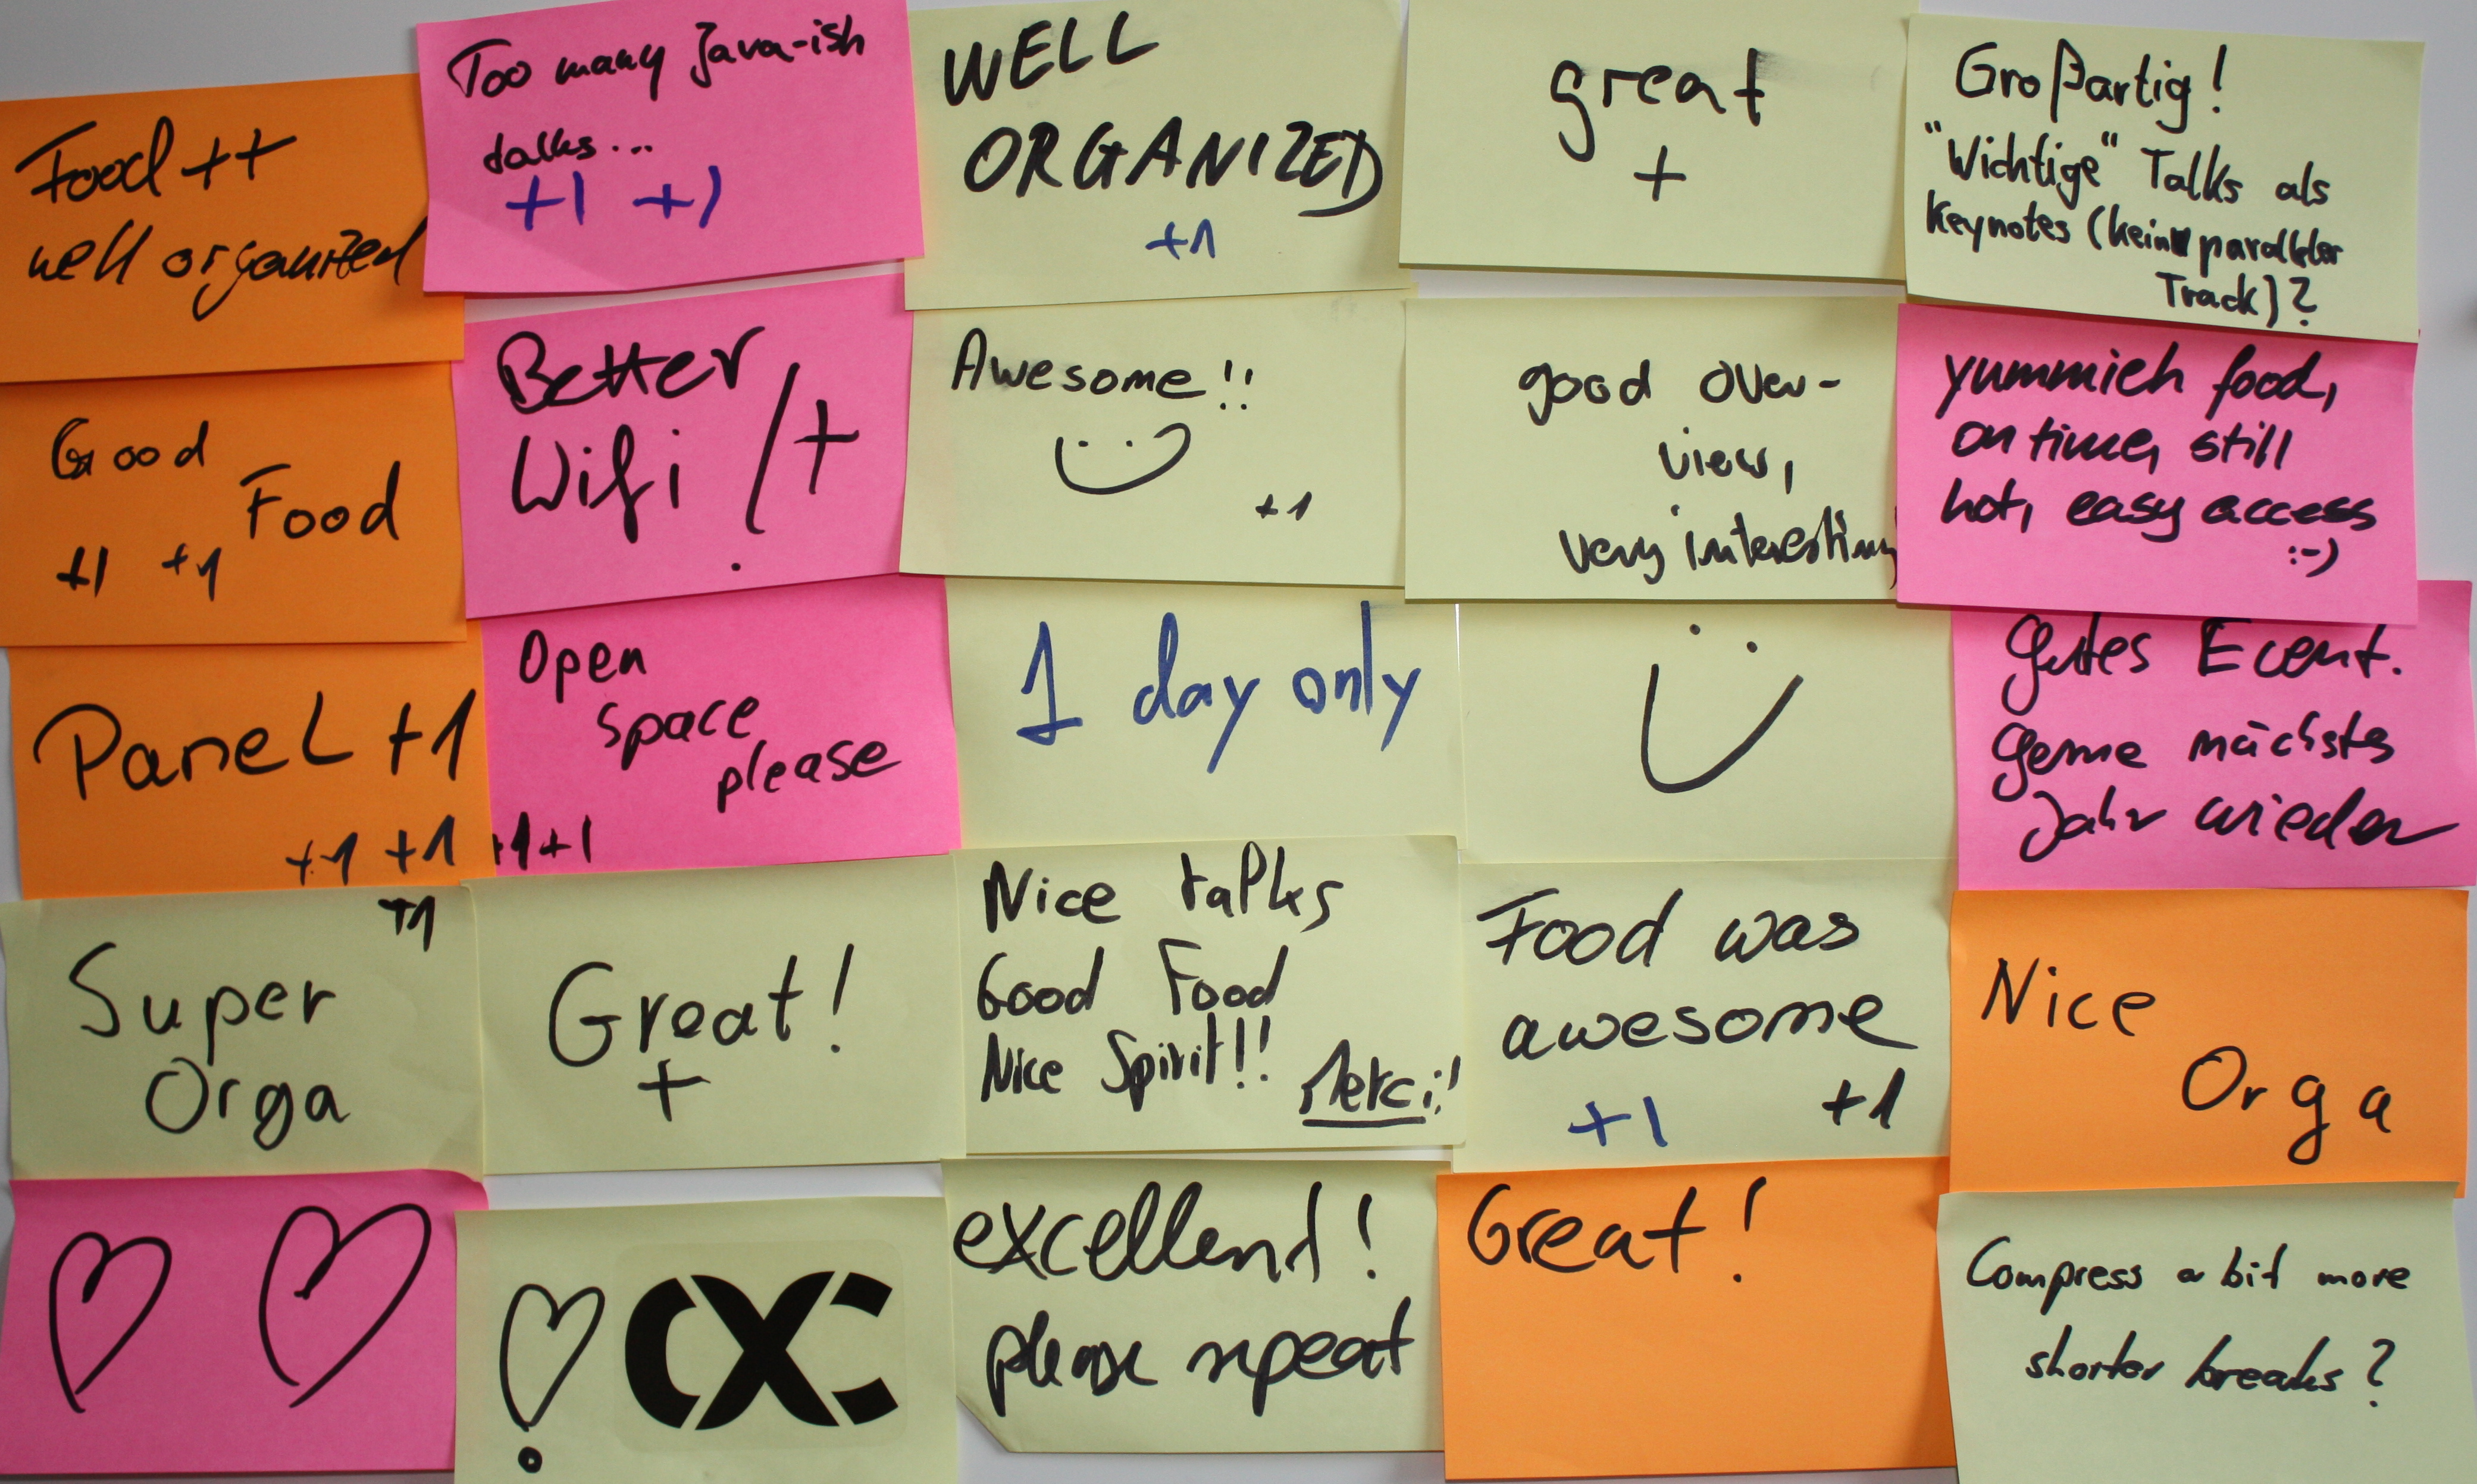 Food ++
well organized
Too many Java-ish
talks...
+1 +1
WELL
ORGANIZED
+1
great
+
Großartig!
"Wichtige" Talks als
Keynotes (kein paralleler
Track)?
Good
Food
+1 +1
Better
Wifi /+
Awesome!!
+1
good over-
view,
very interesting
yummieh food,
on time, still
hot, easy access
:-)
Panel +1
+1 +1
Open
space
please
+1 +1
1 day only
gutes Event.
gerne nächstes
Jahr wieder
+1
Super
Orga
Great!
+
Nice talks
Good Food
Nice Spirit!!
Merci!!
Food was
awesome
+1 +1
Nice
Orga
excellent!
please repeat
Great!
Compress a bit more
shorter breaks?